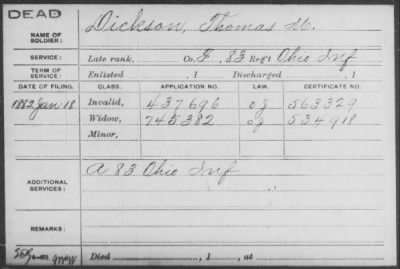 DEAD
NAME OF SOLDIER: Dickson, Thomas M.
SERVICE: Late rank, Co. F, 83 Reg't Ohio Inf
TERM OF SERVICE: Enlisted , 1 Discharged , 1
DATE OF FILING. CLASS. APPLICATION NO. LAW. CERTIFICATE NO.
1882 Jan 18 Invalid, 437696 563329
Widow, 745382 534918
Minor,
ADDITIONAL SERVICES: A 83 Ohio Inf
REMARKS:
Died , 1 , at